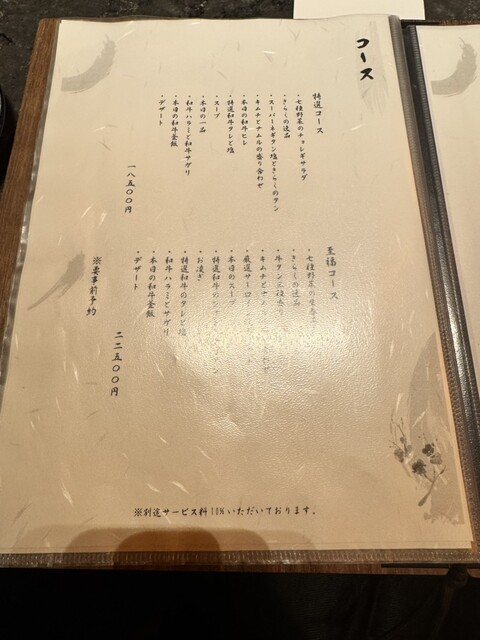 コース
特選コース
・七種野菜のチョレギサラダ
・きらくの逸品
・スーパーネギタン塩ときらくのタン
・キムチとナムルの盛り合わせ
・本日の和牛ヒレ
・特選和牛タレと塩
・スープ
・本日の一品
・和牛ハラミと和牛サガリ
・本日の和牛釜飯
・デザート
一八五〇〇円
至福コース
・七種野菜の
・きらくの逸品
・牛タン三種盛り
・キムチとナム
・厳選サーロイン
・本日のスープ
・特選和牛のシャ
・お凌ぎ
・特選和牛のタレと塩
・和牛ハラミとサガリ
・本日の和牛釜飯
・デザート
※要事前予約
二二五〇〇円
※別途サービス料10%いただいております。